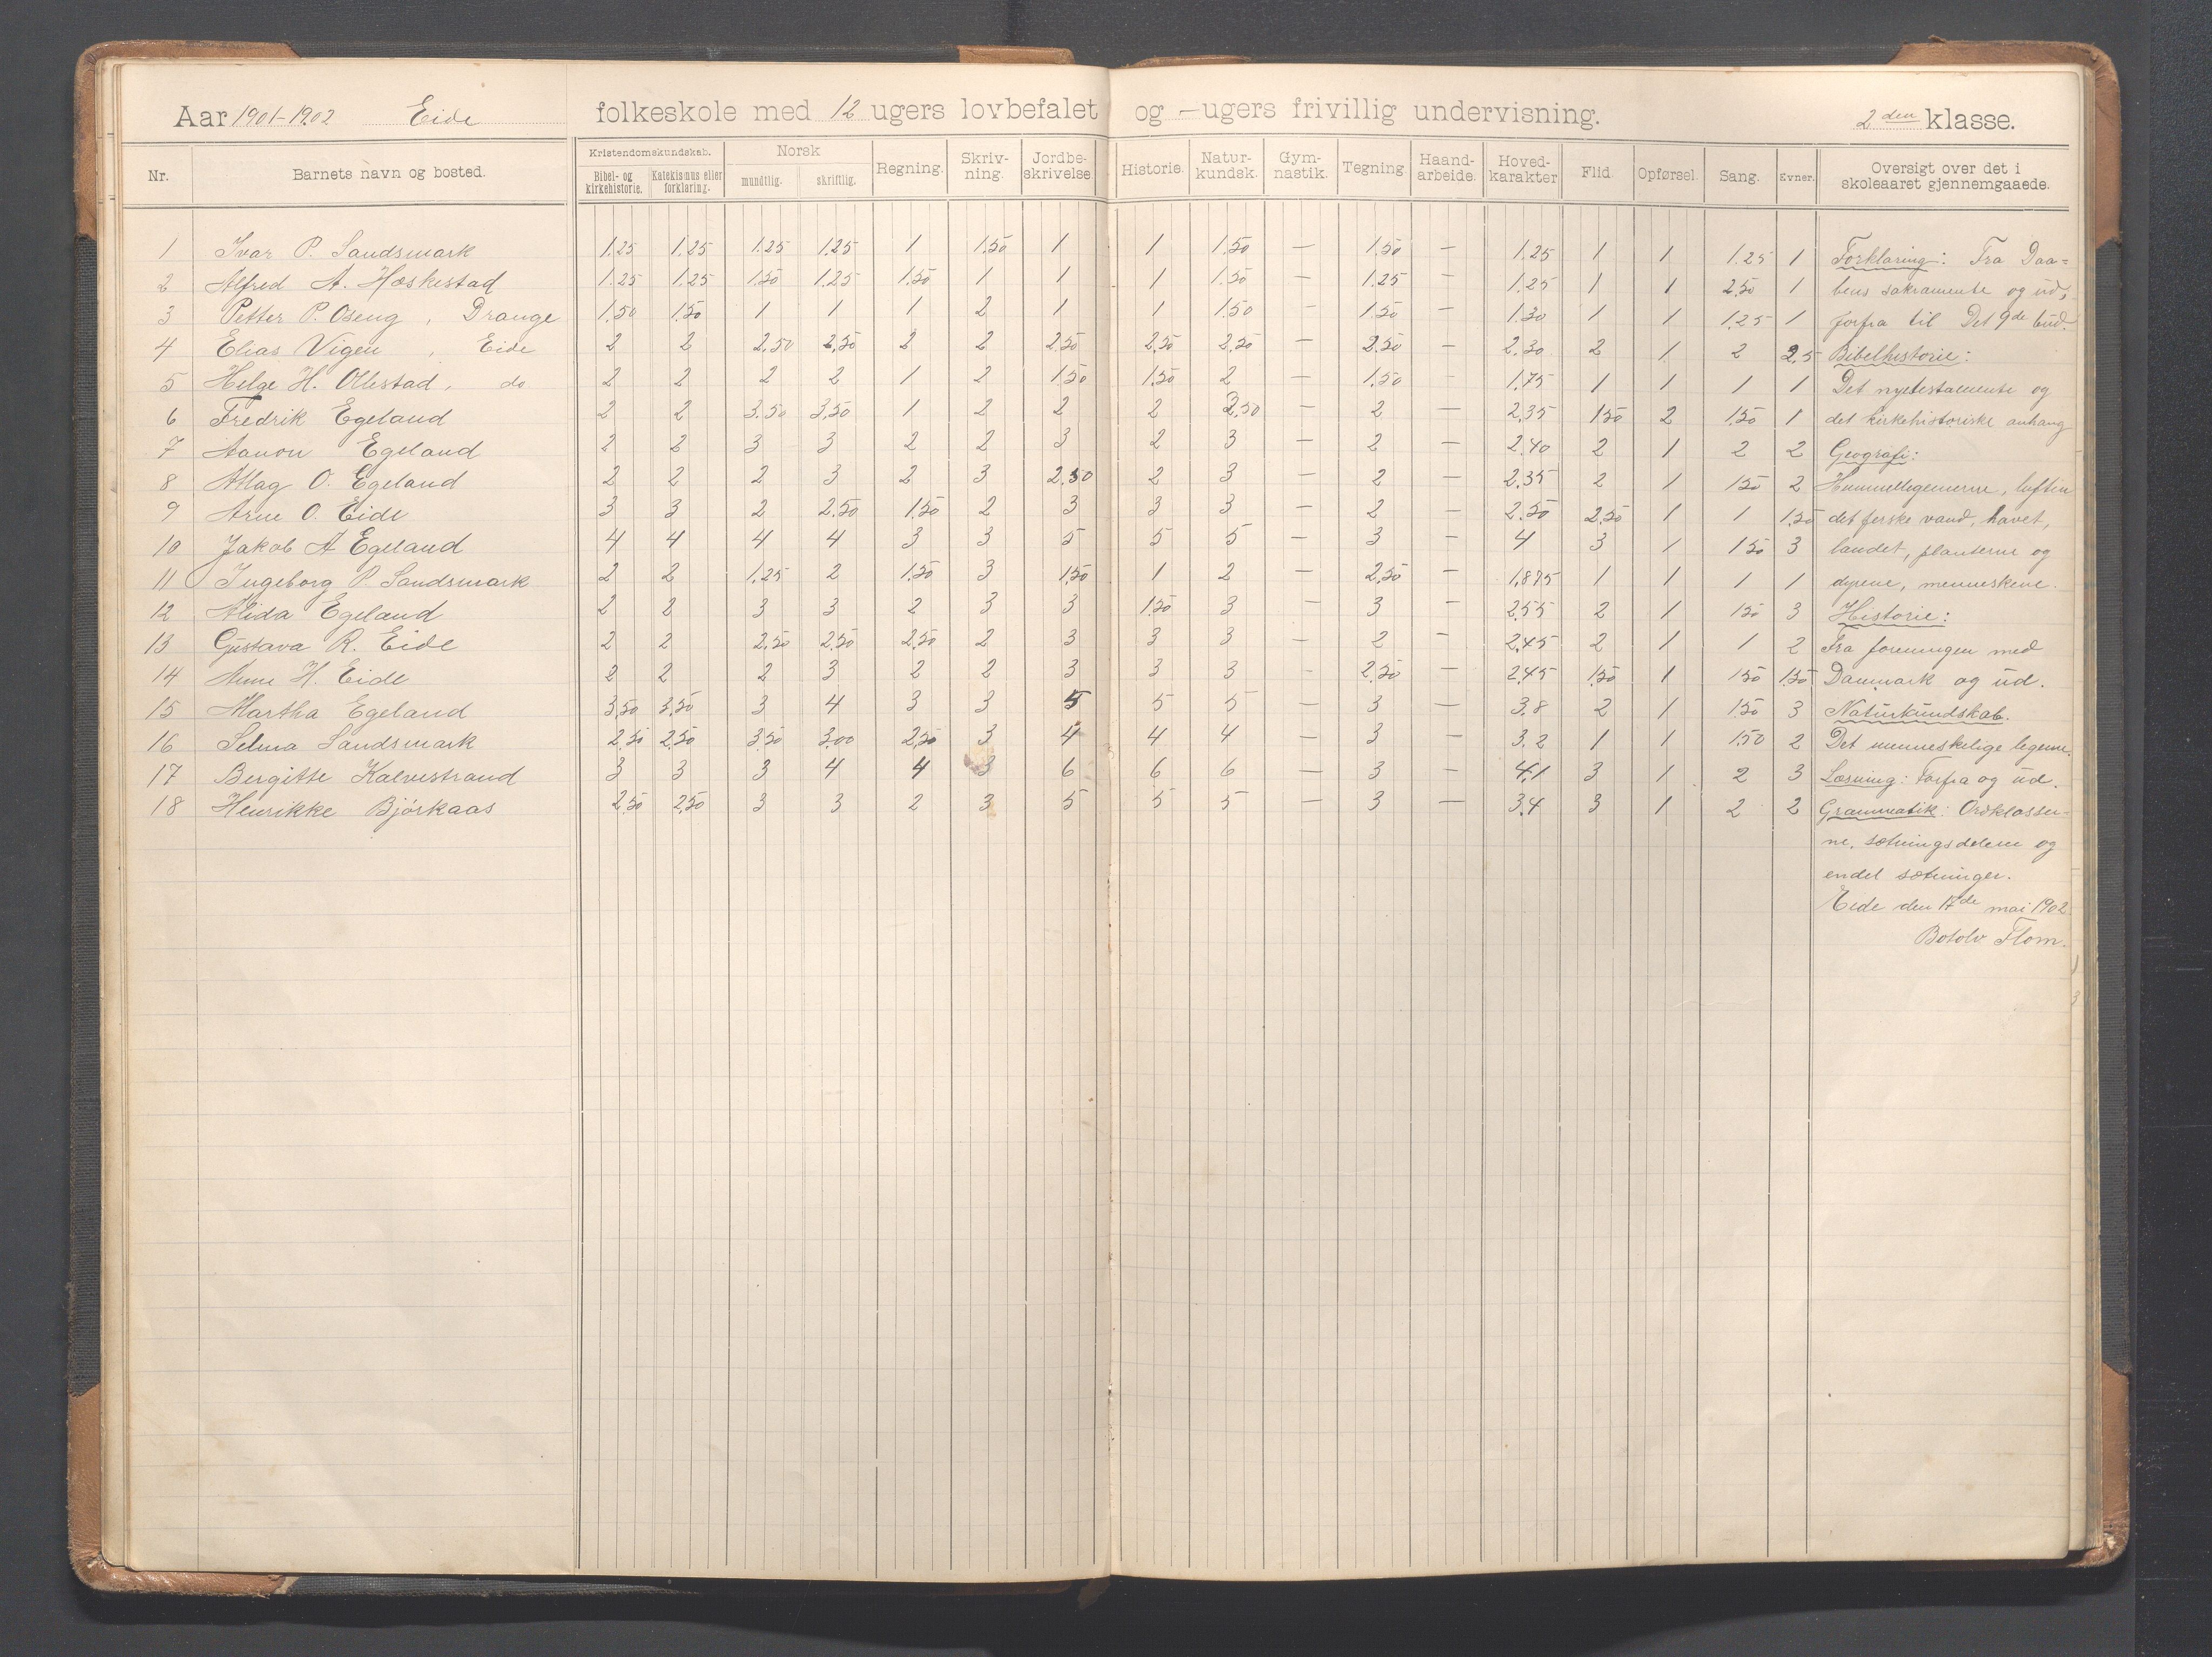 Aar 1901-1902 Eide folkeskole med 12 ugers lovbefalet og - ugers frivillig undervisning. 2den klasse.
Nr. Barnets navn og bosted. Kristendomskundskab. Bibel- og kirkehistorie. Katekismus eller forklaring. Norsk mundtlig. skriftlig. Regning. Skriv-ning. Jordbe-skrivelse. Historie. Natur-kundsk. Gym-nastik. Tegning Haand-arbeide. Hoved-karakter Flid. Opførsel. Sang. Evner. Oversigt over det i skoleaaret gjennemgaaede.
1 Ivar P. Sandsmark 1.25 1.25 1.25 1.25 1 1.50 1 1 1.50 — 1.50 — 1.25 1 1 1.25 1 Forklaring: Fra Daa=
2 Alfred A. Hæskestad 1.25 1.25 1.50 1.25 1.50 1 1 1 1.50 — 1.25 — 1.25 1 1 2.50 1 bens sakramente og ud,
3 Petter P. Oseng, Drange 1.50 1.50 1 1 1 2 1 1 1.50 — 1.50 — 1.30 1 1 1.25 1 forfra til Det 9de bud.
4 Elias Vigen, Eide 2 2 2.50 2.50 2 2 2.50 2.50 2.50 — 2.50 — 2.30 2 1 2 2.5 Bibelhistorie:
5 Helge H. Ollestad, do 2 2 2 2 1 2 1.50 1.50 2 — 1.50 — 1.75 1 1 1 1 Det nyetestamente og
6 Fredrik Egeland 2 2 3.50 3.50 1 2 2 2 2.50 — 2 — 2.35 1.50 2 1.50 1 det kirkehistoriske anhang
7 Aanon Egeland 2 2 3 3 2 2 3 2 3 — 2 — 2.40 2 1 2 2 Geografi:
8 Atlag O. Egeland 2 2 2 3 2 3 2.50 2 3 — 2 — 2.35 2 1 1.50 2 Himmellegemerne, luften
9 Arne O. Eide 3 3 2 2.50 1.50 2 3 3 3 — 2 — 2.50 2.50 1 1 1.50 det ferske vand, havet,
10 Jakob A Egeland 4 4 4 4 3 3 5 5 5 — 3 — 4 3 1 1.50 3 landet, planterne og
11 Ingeborg P. Sandsmark 2 2 1.25 2 1.50 3 1.50 1 2 — 2.50 — 1.875 1 1 1 1 dyrene, menneskene.
12 Alida Egeland 2 2 3 3 2 3 3 1.50 3 — 3 — 2.55 2 1 1.50 3 Historie:
13 Gustava R. Eide 2 2 2.50 2.50 2.50 2 3 3 3 — 2 — 2.45 2 1 1 2 Fra foreningen med
14 Anne H. Eide 2 2 2 3 2 2 3 3 3 — 2.50 — 2.45 1.50 1 1.50 1.50 Danmark og ud.
15 Martha Egeland 3.50 3.50 3 4 3 3 5 5 5 — 3 — 3.8 2 1 1.50 3 Naturkundskab.
16 Selma Sandsmark 2.50 2.50 3.50 3.00 2.50 3 4 4 4 — 3 — 3.2 1 1 1.50 2 Det menneskelige legeme.
17 Bergitte Kalvestrand 3 3 3 4 4 3 6 6 6 — 3 — 4.1 3 1 2 3 Læsning: Forfra og ud.
18 Henrikke Bjørkaas 2.50 2.50 3 3 2 3 5 5 5 — 3 — 3.4 3 1 2 2 Grammatik: Ordklasser-
ne, sætningsdelene og
endel sætninger.
Eide den 17de mai 1902.
Botolv Flom.